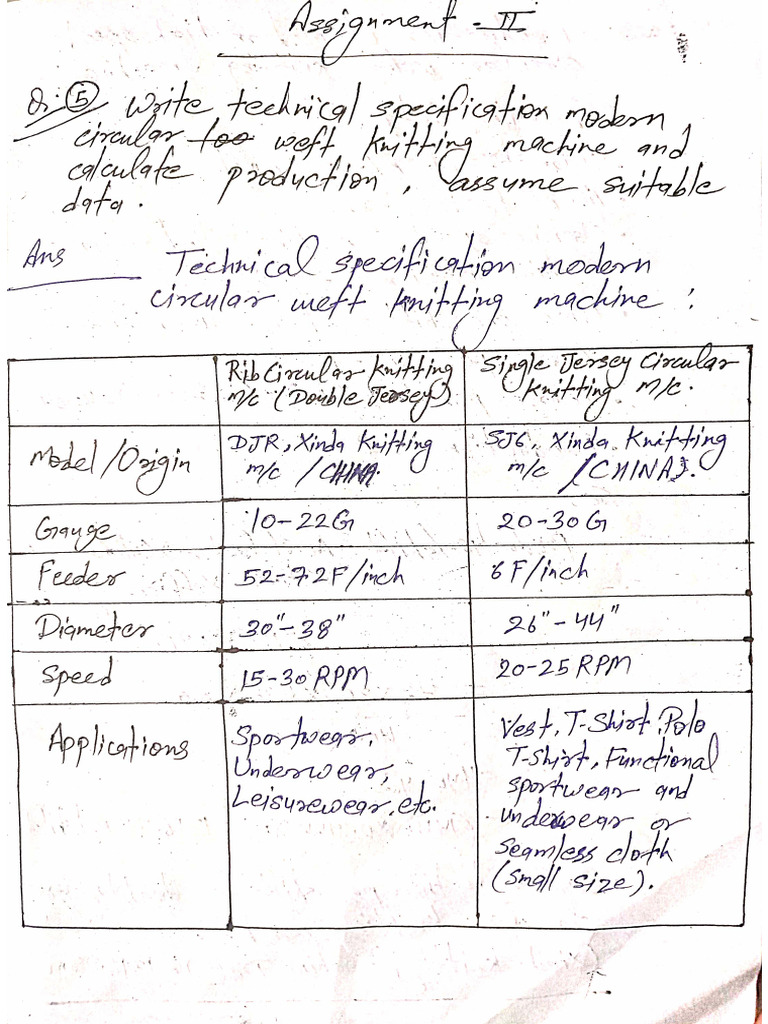 Assignment - II
Qr. 5 Write technical specification modern
circular too weft knitting machine and
calculate production, assume suitable
data.
Ans Technical specification modern
circular weft knitting machine :
Rib Circular Knitting
m/c (Double Jersey)
Single Jersey Circular
Knitting m/c.
Model/Origin
DJR, Xinda Knitting
m/c / CHINA.
SJ6, Xinda Knitting
m/c / (CHINA).
Gauge 10-22G 20-30G
Feeder 52-72F/inch 6F/inch
Diameter 30"-38" 26"-44"
Speed 15-30 RPM 20-25 RPM
Applications
Sportwear,
Underwear,
Leisurewear, etc.
Vest, T-Shirt, Polo
T-Shirt, Functional
sportwear and
underwear or
seamless cloth
(small size).